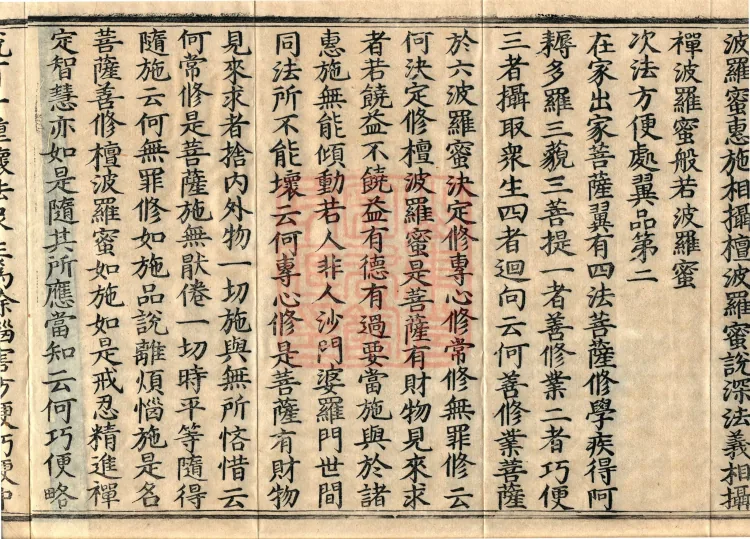 波羅蜜惠施相攝檀波羅蜜說深法義相攝
禪波羅蜜般若波羅蜜
次法方便處翼品第二
在家出家菩薩翼有四法菩薩修學疾得阿
耨多羅三藐三菩提一者善修業二者巧便
三者攝取衆生四者迴向云何善修業菩薩
於六波羅蜜決定修專心修常修無罪修云
何決定修檀波羅蜜是菩薩有財物見來求
者若饒益不饒益有德有過要當施與於諸
惠施無能傾動若人非人沙門婆羅門世間
同法所不能壞云何專心修是菩薩有財物
見來求者捨内外物一切施與無所悋惜云
何常修是菩薩施無猒倦一切時平等隨得
隨施云何無罪修如施品說離煩惱施是名
菩薩善修檀波羅蜜如施如是戒忍精進禪
定智慧亦如是隨其所應當知云何巧便略